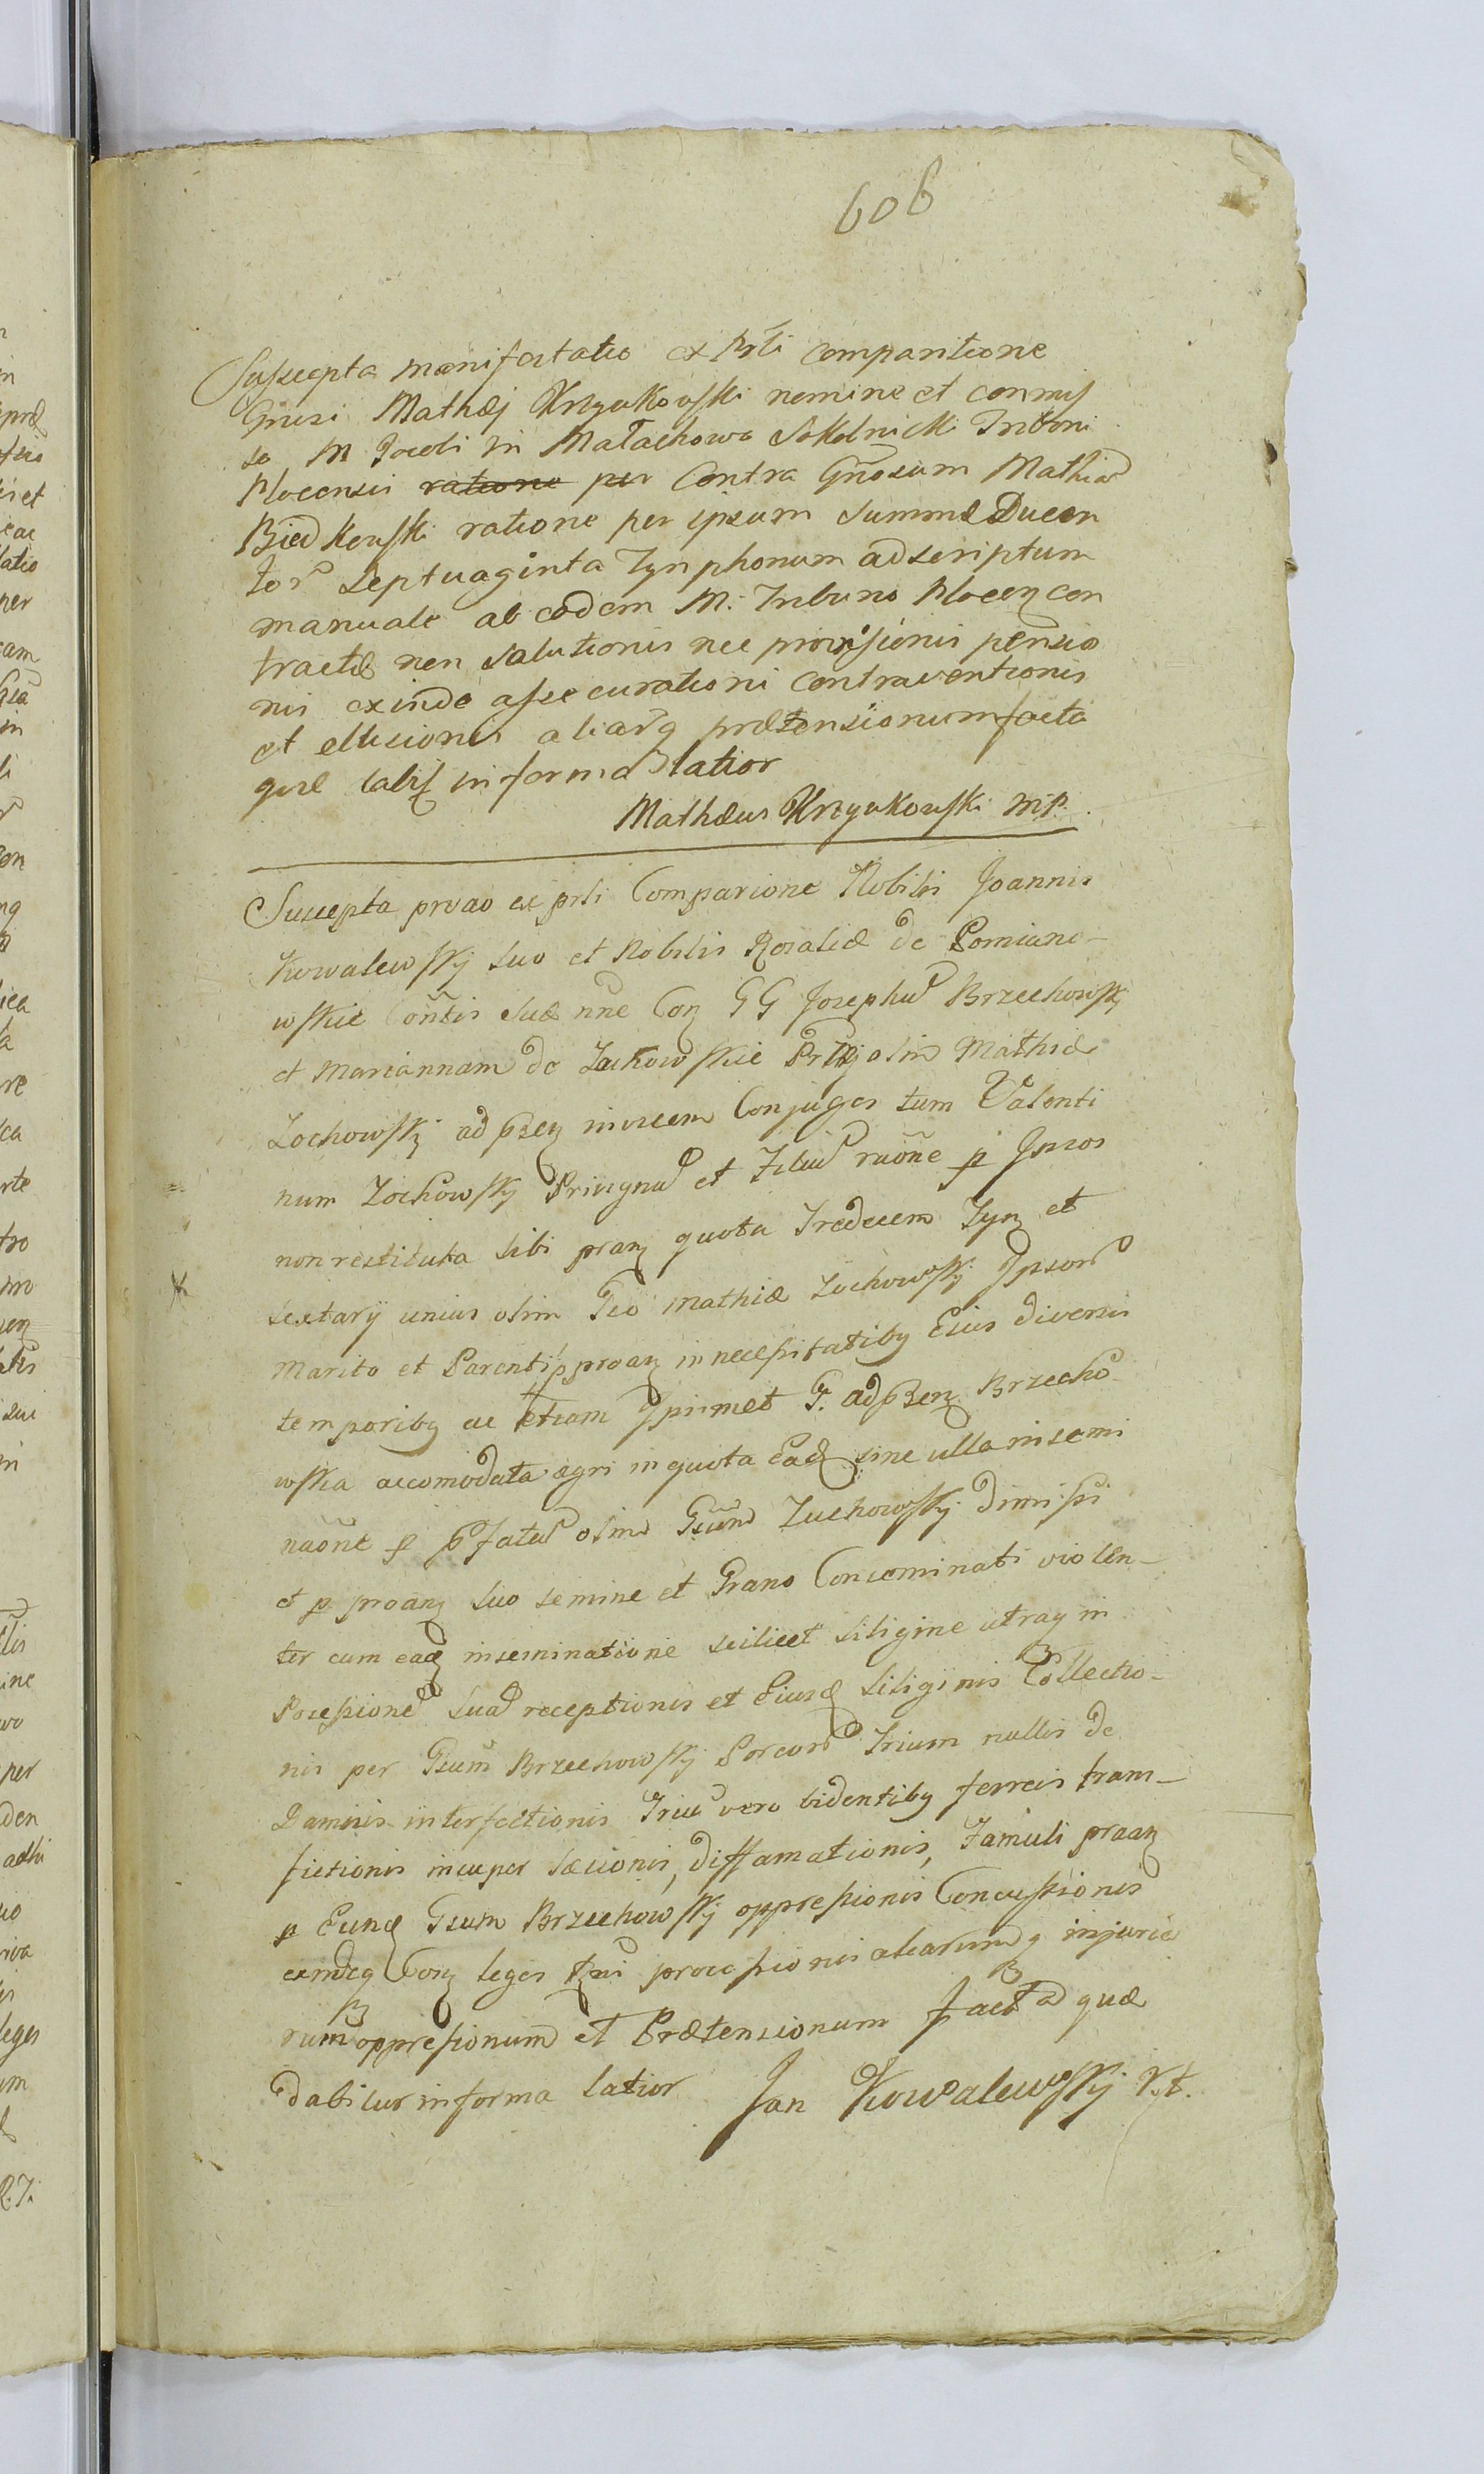 606
Suscepta manifestatio ex Prsti comparitione
Gnrsi Mathæj Krzyukowski nomine et commis
so M Jacobi in Małachowo Sokolnicki Tribuni
Plocensis ratione per Contra Gñosum Mathia
Biedkowski ratione per ipsum Summæ Ducen
tor Septuaginta Tynphonum ad scriptum
manuale ab eodem M. Tribuno Plocen con
tractæ non Salutionis nec provisionis pensio
nis exinde assecurationi contraventionis
et ellusionis aliarq prætensionum facta
quæ labit in forma latior
Mathæus Krzyukowski mp.
Suscepta prvao ex prsti Comparione Nobilis Joannis
Kowalewskj suo et Nobilis Rosaliæ de Pomiano-
wskie Coñtis suæ nñe Con GG Josephu Brzechowskj
et Mariannam de Zochowskie Prij olim Mathiæ
Zochowskj ad psen invicem Conjuges tum Valenti
num Zochowskj Privignu et Filiu raõne p Ipsos
non restituta sibi pran quota Tredecem Tyn et
sextarÿ unius olim Gso Mathiæ Zochowskj Ipsor
Marito et Parenti p proan in necessitatibq Eius diversis
temporibq ac etiam Ipsimet G. ad psen Brzecho-
wska accomodata agri in quota ead sine ulla insemi
naõne p pfatu olim Gsum Zuchowskj dimissi
et p proanq suo semine et Grano Conseminati violen-
ter cum eaq inseminatione scilicet siligine utraq in
Possessione sua receptionis et Eiusd siliginis Collectio-
nis per Gsum Brzechowskj Porcor Trium nullis de
Damnis interfectionis Triu vero bidentibq ferreis trans-
fictionis insuper Læsionis, diffamationis, Famuli praan
p Eund Gsum Brzechowskj oppressionis Concussionis
eamdeq Con leges processionis aliarumq injuria
rum oppressionum et Prætensionum facta quæ
dabitur in forma latior Jan Kowalewskj